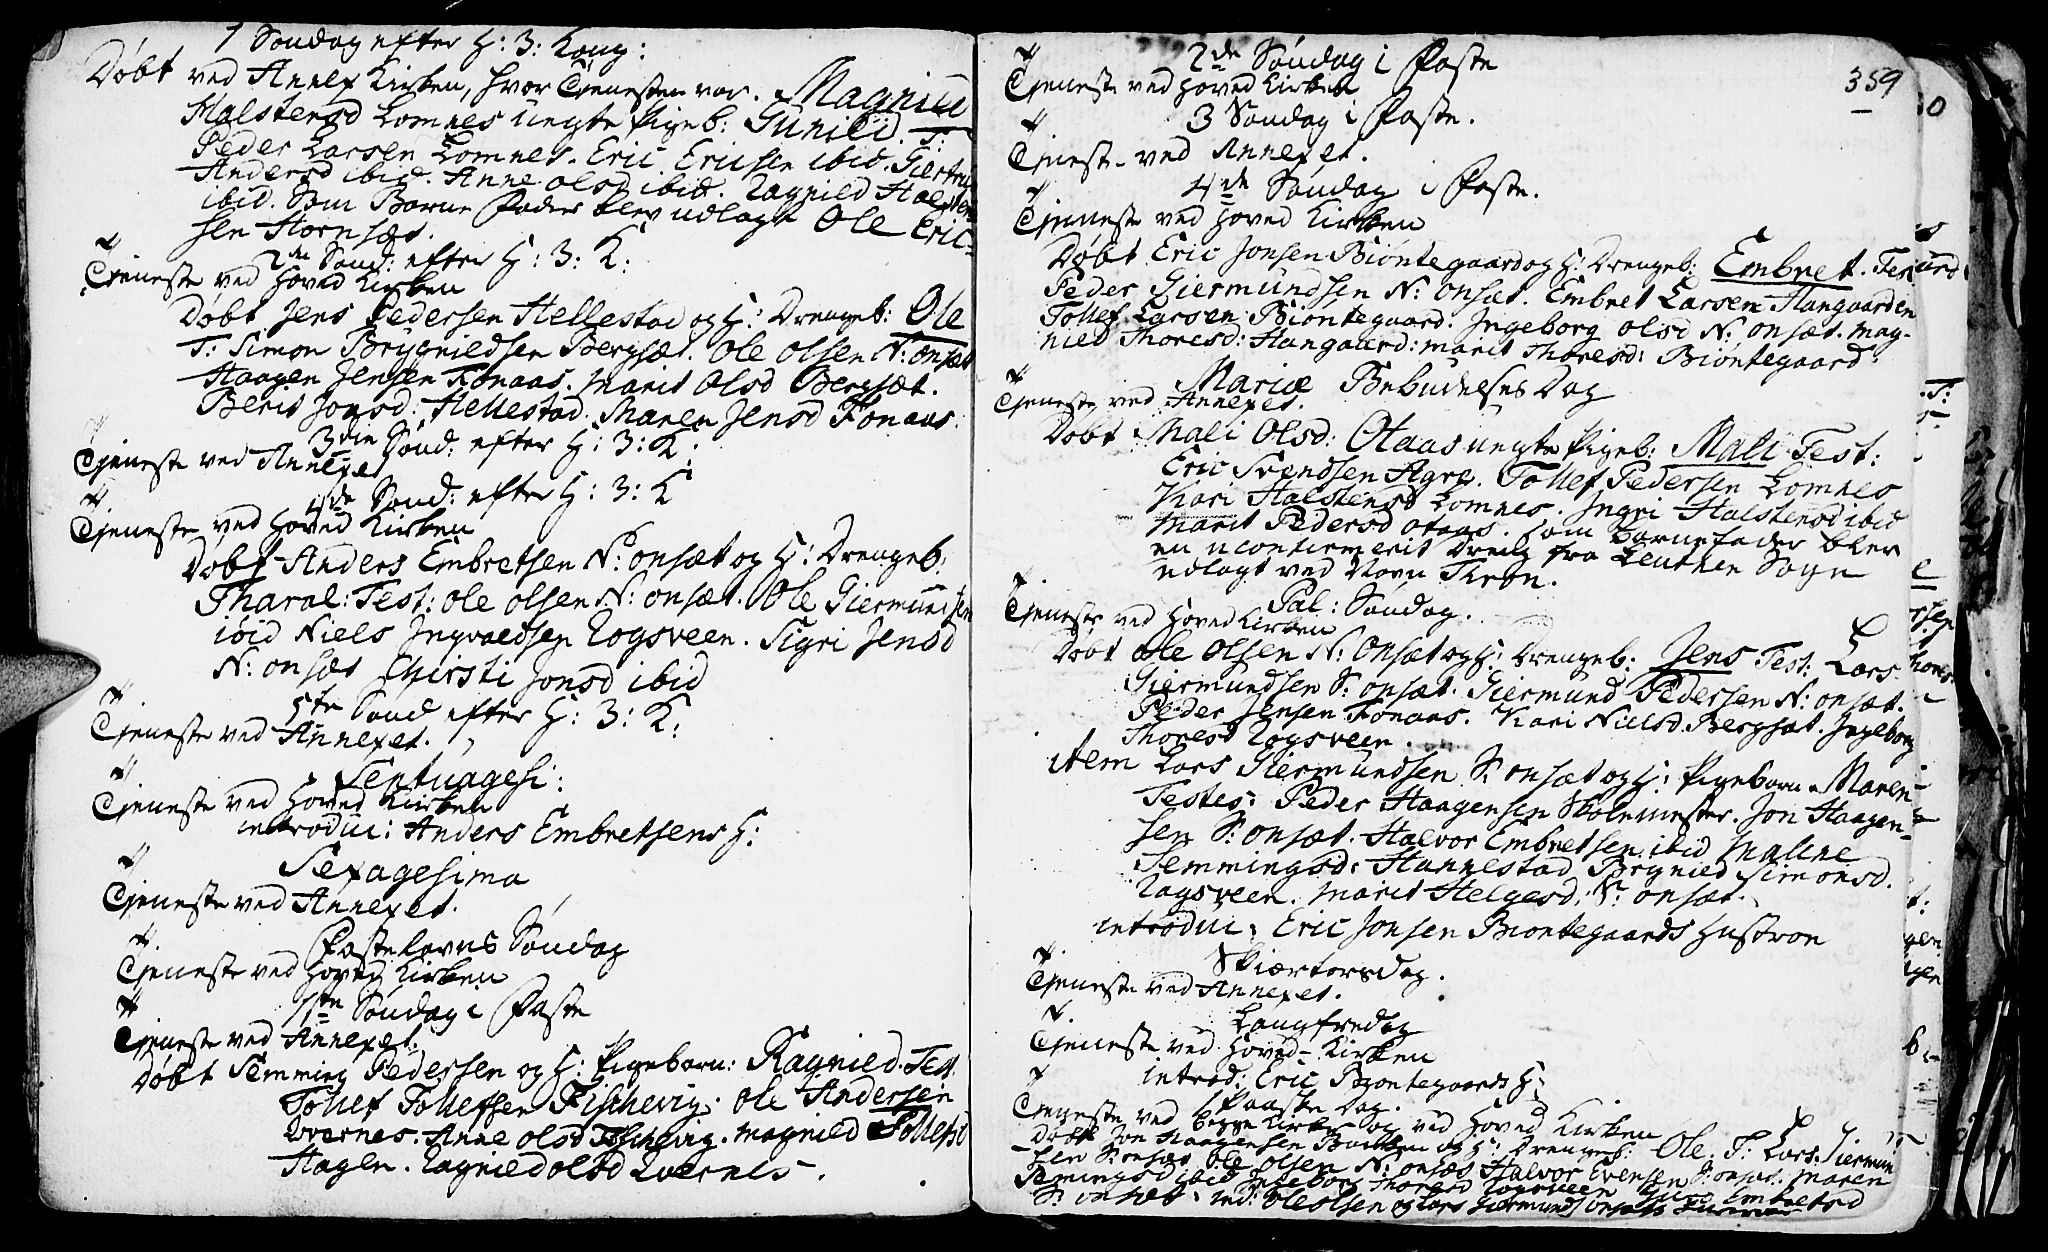 1 Søndag efter H: 3: Kong:
Døbt ved Annex Kirken, hvor Tjenesten var. Magnild
Halstensd Lomnes uegte Pigeb: Gunild. T:
Peder Larsen Lomnes. Eric Ericsen ibid. Giertru
Andersd ibid. Anne olsd ibid. Ragnild Halstens
ibid. Som Barne Fader blev udlagt Ole Eric-
sen Hornsæt.
2den Sønd: efter H: 3: K:
Tjeneste ved Hoved Kirken
Døbt Jens Pedersen Hellestad og H: Drengeb: Ole
T: Simon Brÿgnieldsen Bergsæt. Ole olsen N: onsæt
Haagen Jensen Fonaas. Marit Olsd Bergsæt.
Berit Jonsd: Hellestad. Maren Jensd Fonaas.
3die Sønd: efter H: 3: K:
Tjeneste ved Annexet
4de Sønd: efter H: 3: K
Tjeneste ved Hoved Kirken
Døbt Anders Embretsen N: onsæt og H: Drengeb:
Tharal: Test: ole olsen N: onsæt. Ole Giermundsen
ibid Niels Ingvaldsen Rogsveen. Sigri Jensd
N: onsæt Chirsti Jonsd ibid
5te Sønd efter H: 3: K:
Tjeneste ved Annexet.
Septuagesi:
Tjeneste ved Hoved Kirken
introdu: Anders Embretsens H:
Sexagesima
Tjeneste ved Annexet.
Fastelavns Søndag
Tjeneste ved Hoved Kirken
1ste Søndag i Faste
Tjeneste ved Annexet.
Døbt Temming Pedersen og H: Pigebarn: Ragnied. Test
Tollef Tollefsen Fischevig. Ole Andersen
Qvernes. Anne olsd Fischevig. Magnied Tollefsd
Hagen. Ragnied olsd Qvernes.
359
2de Søndag i Faste
Tjeneste ved Hoved Kirken
3 Søndag i Faste.
Tjeneste ved Annexet.
4de Søndag i Faste.
Tjeneste ved Hoved Kirken
Døbt Eric Jonsen Biøntegaard og H: Drengeb: Embret. Test
Peder Giermundsen N: onsæt. Embret Larsen Hangaarden
Tollef Larsen Biøntegaard. Ingeborg olsd N: onsæt. Mag-
nied Thoresd: Hangaard: marit Thoresd: Biøntegaard
Mariæ Bebudelses Dag
Tjeneste ved Annexet.
Døbt Mali Olsd: Otaas uegte Pigeb: Mali Test:
Eric Svendsen Agre. Tollef Pedersen Lomnes
Kari Halstensd Lomnes. Ingri Halstensd ibid
Marit Pedersd otaas. som Barnefader blev
en uconfirmerit Dreng fra Leuthen Sogn
udlagt ved Navn Thron.
Pal: Søndag.
Tjeneste ved Hoved Kirken
Døbt Ole Olsen N: Onsæt og H: Drengeb: Jens Test: Lars
Giermundsen S: onsæt. Giermund Pedersen N: onsæt.
Peder Jensen Fonaas. Kari Nielsd. Bergsæt. Ingeborg
Thoresd Rogsveen.
item Lars Giermundsen S: onsæt og H: Pigebarn Maren
Testes: Peder Haagensen Skolemester. Jon Haagen-
sen S: onsæt. Halvor Embretsen ibid Malene
Temmingsd: Hannestad Brynied Simonsd.
Rogsveen. Marit Helgesd: S: onsæt.
introdu: Eric Jonsen Biøntegaards Hustroe
Skiærtorsdag.
Tjeneste ved Annexet.
Langfredag
Tjeneste ved Hoved-Kirken
introd: Eric Biøntegaards H:
1 Paaske Dag.
Tjeneste ved begge Kirker og ved Hoved Kirken
Døbt Jon Haagensen Backen og H: Drengeb: Ole. T: Lars Giermun
sen S: onsæt Ole Olsen N: onsæt Halvor Evensen S: onsæt. Maren
Temingsd ibid Ingeborg Thoresd Rogsveen Embretsd
S: onsæt. Ind: Ole olsen og Lars Giermunds onsæts